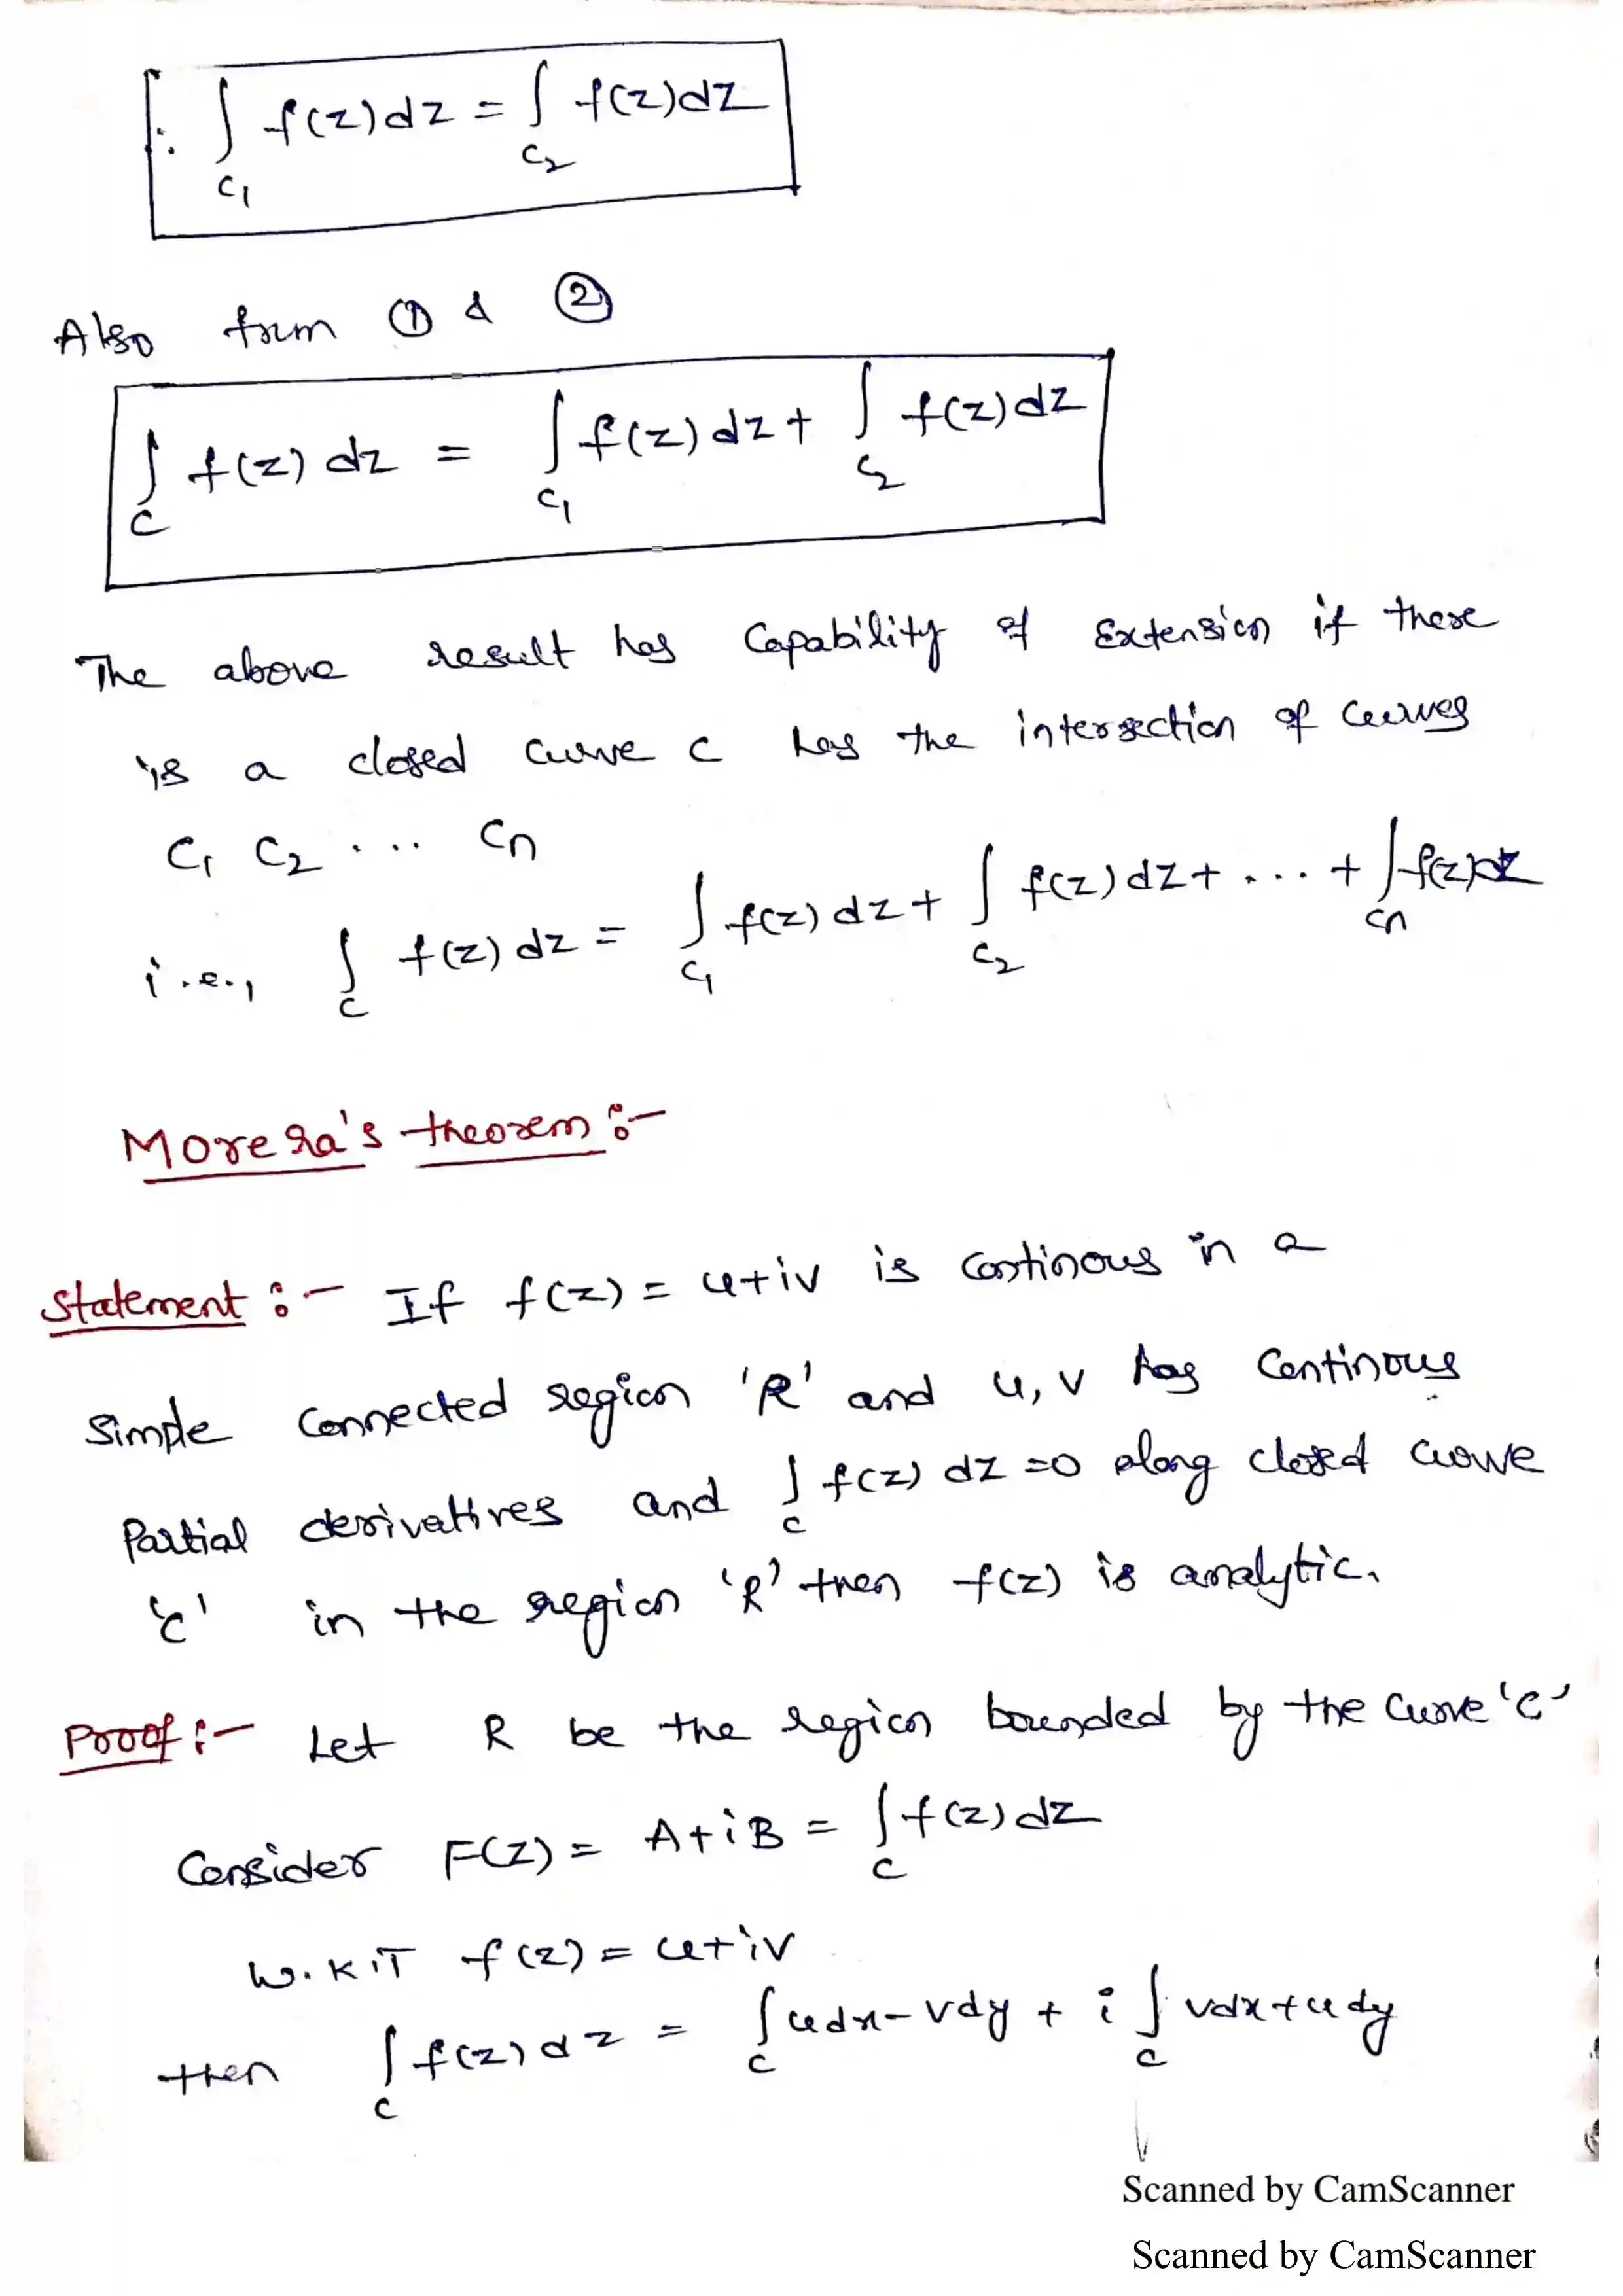 ∴ ∫_{C1} f(z) dz = ∫_{C2} f(z) dz
Also from ① & ②
∫_C f(z) dz = ∫_{C1} f(z) dz + ∫_{C2} f(z) dz
The above result has Capability of Extension if there
is a closed curve C has the intersection of curves
C1 C2 ... Cn
i.e., ∫_C f(z) dz = ∫_{C1} f(z) dz + ∫_{C2} f(z) dz + ... + ∫_{Cn} f(z) dz
Morera's theorem :-
Statement :- If f(z) = u+iv is continous in a
Simple Connected region 'R' and u, v has Continous
Partial derivatives and ∫_C f(z) dz =0 along closed curve
'c' in the region 'R' then f(z) is analytic.
Proof :- Let R be the region bounded by the Curve 'c'
Consider F(Z) = A+iB = ∫_C f(z) dz
W.K.T f(z) = u+iv
then ∫_C f(z) dz = ∫_C udx - vdy + i ∫_C vdx + udy
Scanned by CamScanner
Scanned by CamScanner